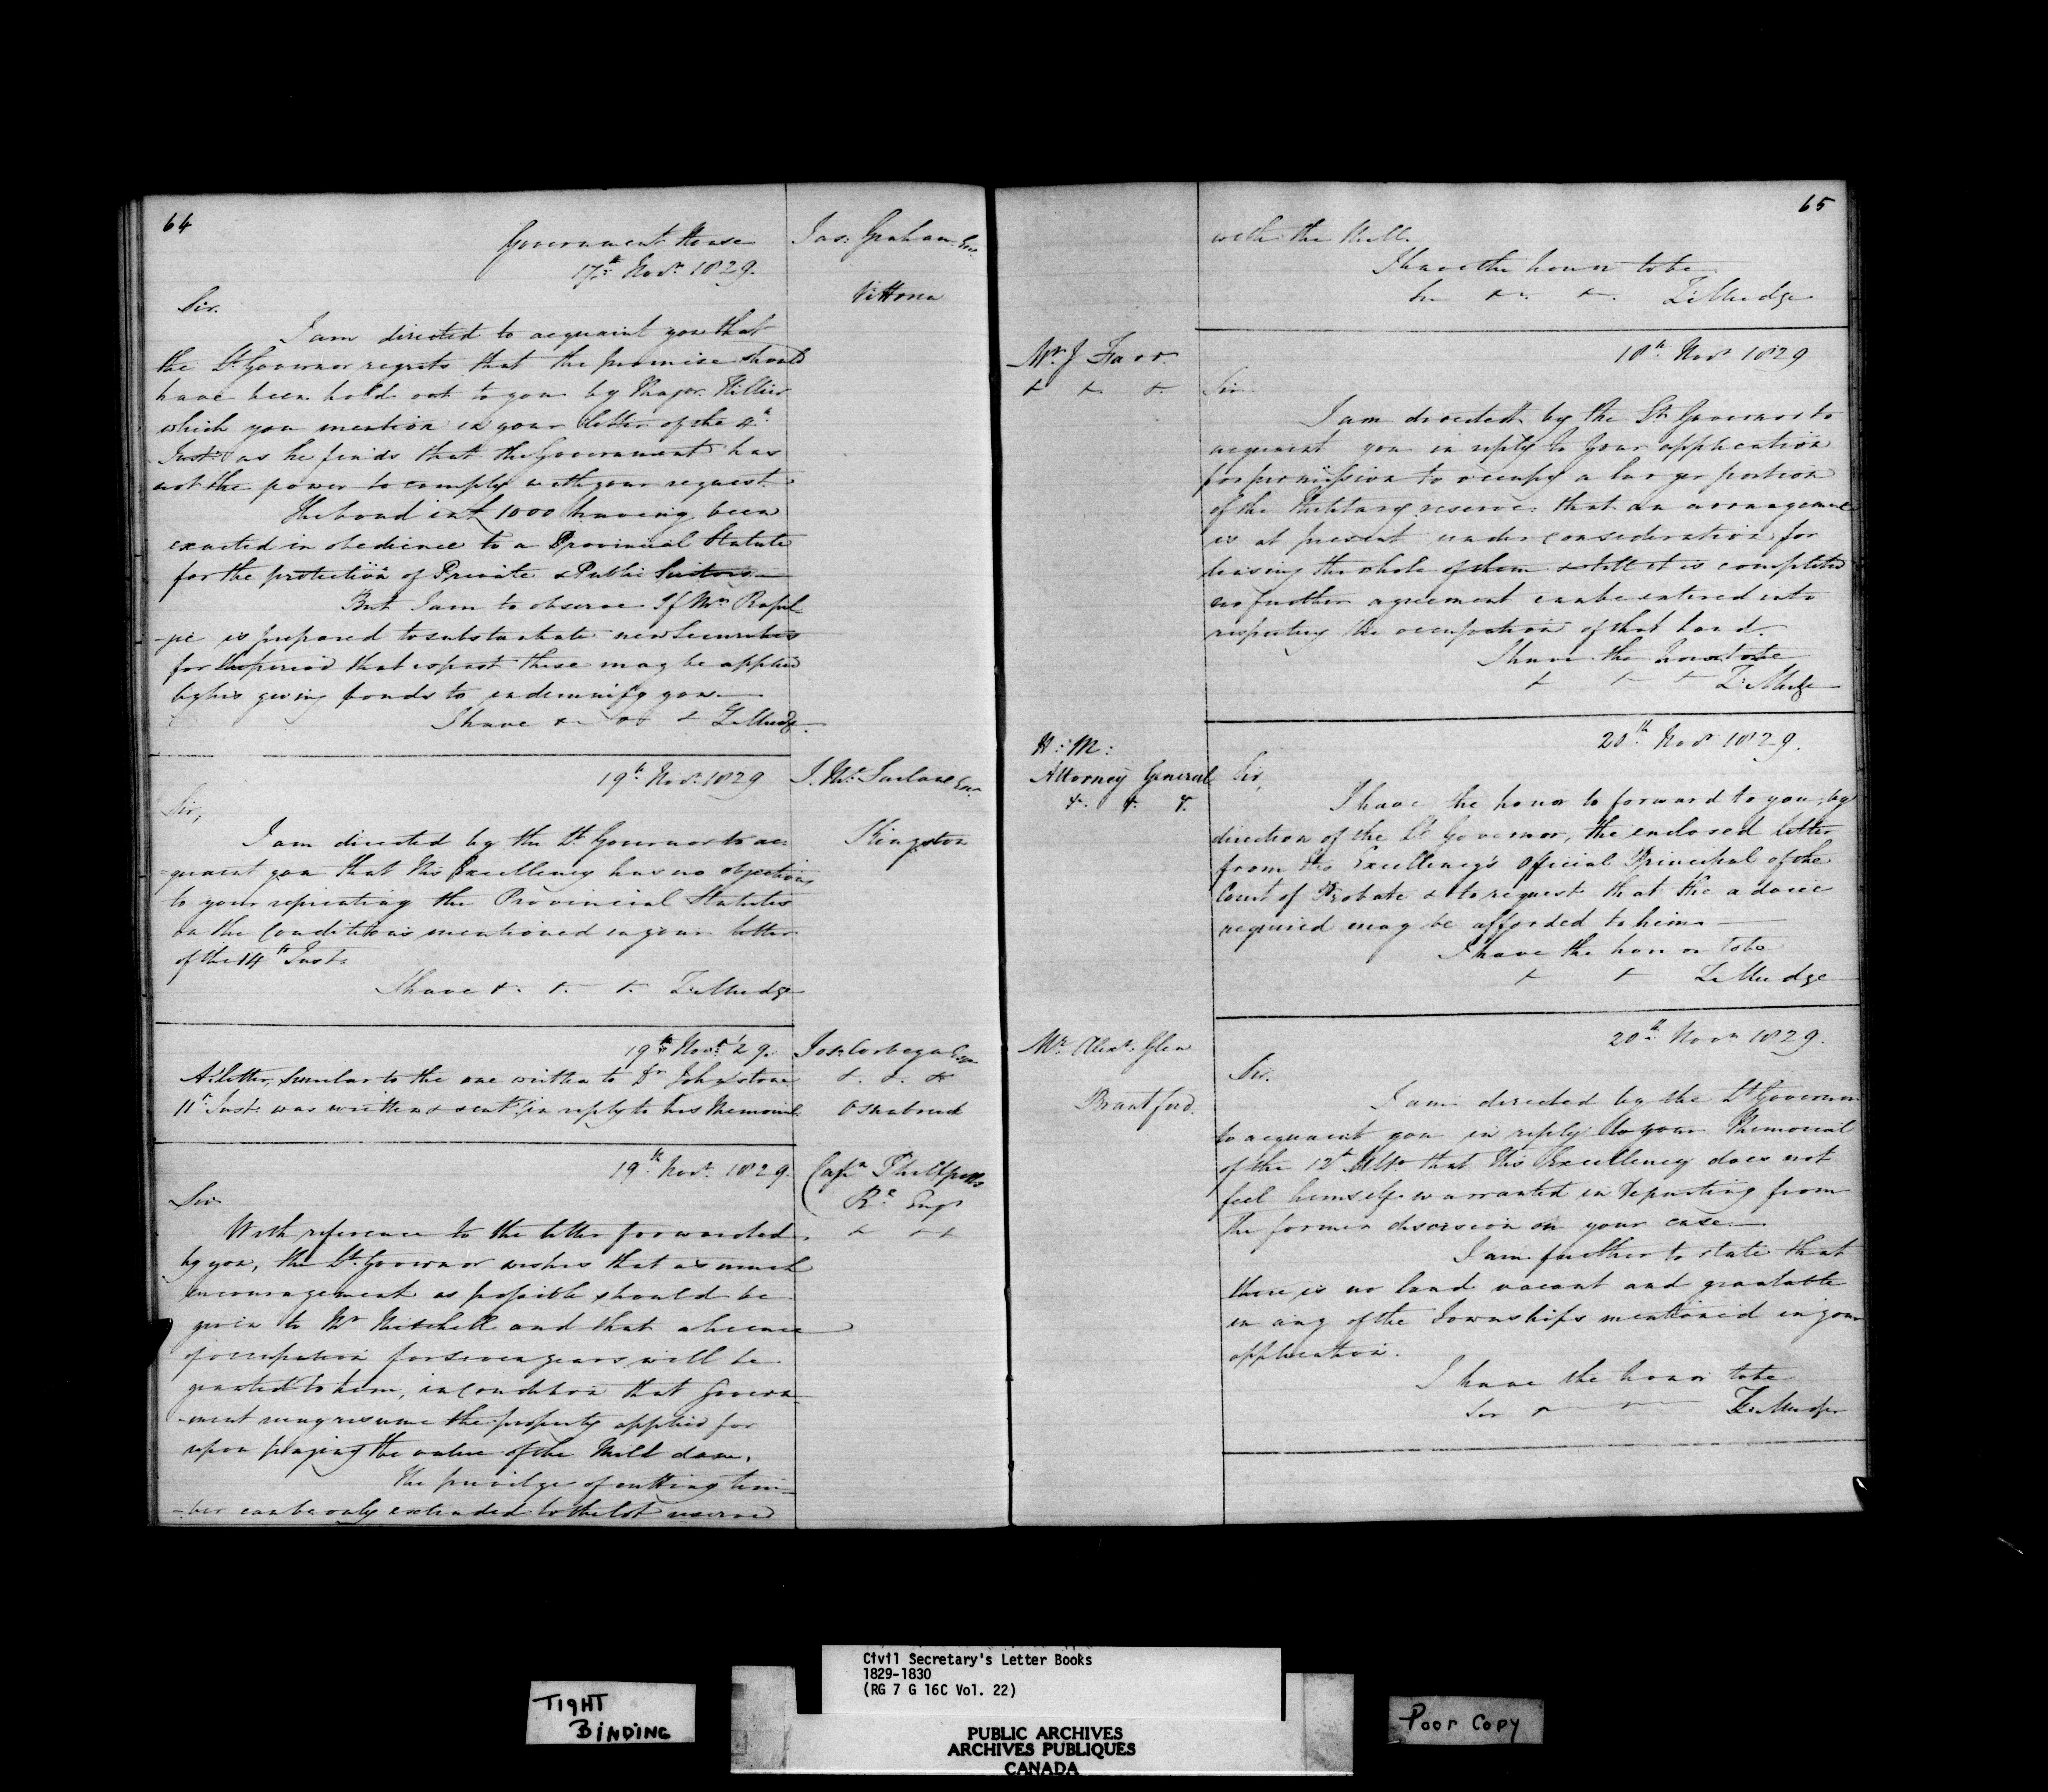 64
Government House
17th Novr 1829.
Jas: Graham Esqr
Vittoria
Sir.
I am directed to acquaint you that
the Lt Governor regrets that the promise should
have been held out to you by Major Hillier
which you mention in your letter of the 4th
Inst: as he finds that the Government has
not the power to comply with your request.
The bond in £ 1000 having been
exacted in obedience to a Provincial Statute
for the protection of Private & Public Suitors—
But I am to observe If Mr Rapel-
-je is prepared to substantiate new Securities
for the period that is past these may be applied
by his giving bonds to indemnify you—
I have &c &c & Z: Mudge
19th Novr 1829
J. Mc Farlane Esqr
Kingston
Sir,
I am directed by the Lt Governor to ac-
-quaint you that His Excellency has no objections
to your reprinting the Provincial Statutes
on the Conditions mentioned in your letter
of the 14th Inst.
I have &. &. &. Z: Mudge
19th Novr 29.
Jos: Esqr
&. &. &c
Osnabruck
A letter, similar to the one written to Dr Johnstone
11th Inst: was written & sent in reply to his Memorial
19th Novr 1829.
Captn Phillpotts
Rl Engs
& &&
Sir
With reference to the letter forwarded
by you, the Lt Governor wishes that as much
encouragement as possible should be
given to Mr Mitchell and that a license
of occupation for seven years will be
granted to him, in condition that Govern-
-ment may resume the property applied for
upon paying the value of the Mill dam.
The privilge of cutting tim-
-ber can be only extended to the lot reserved
65
with the Mill.
I have the honor to be
Sir &c. &c. Z: Mudge
Mr. J Farr
& &c &c
18th Novr 1829
Sir
I am directed by the Lt Governor to
acquaint you in reply to your application
for permission to occupy a larger portion
of the Military reserve. that an arrangement
is at present under consideration for
leasing the whole of them & till it is completed
no further agreement can be entered into
respecting the occupation of that land.
I have the honor to be
& & & Z: Mudge
H: M:
Attorney General
&. &. &.
20th Novr 1829.
Sir,
I have the honor to forward to you, by
direction of the Lt Governor, the enclosed letter
from His Excellency's Official Principal of the
Court of Probate & to request that the advice
required may be afforded to him—
I have the honor to be
& & Z: Mudge
Mr Alexr Glen
Brantford.
20th Novr 1829.
Sir.
I am directed by the Lt Governor
to acquaint you in reply to your Memorial
of the 12th Ulto that His Excellency does not
feel himself warranted in departing from
the former discision on your case—
I am further to state that
there is no land vacant and grantable
in any of the Townships mentioned in your
application.
I have the honor to be
Sir Z: Mudge
TIGHT
BINDING
Civil Secretary's Letter Books
1829-1830
(RG 7 G 16C Vol. 22)
PUBLIC ARCHIVES
ARCHIVES PUBLIQUES
CANADA
Poor Copy